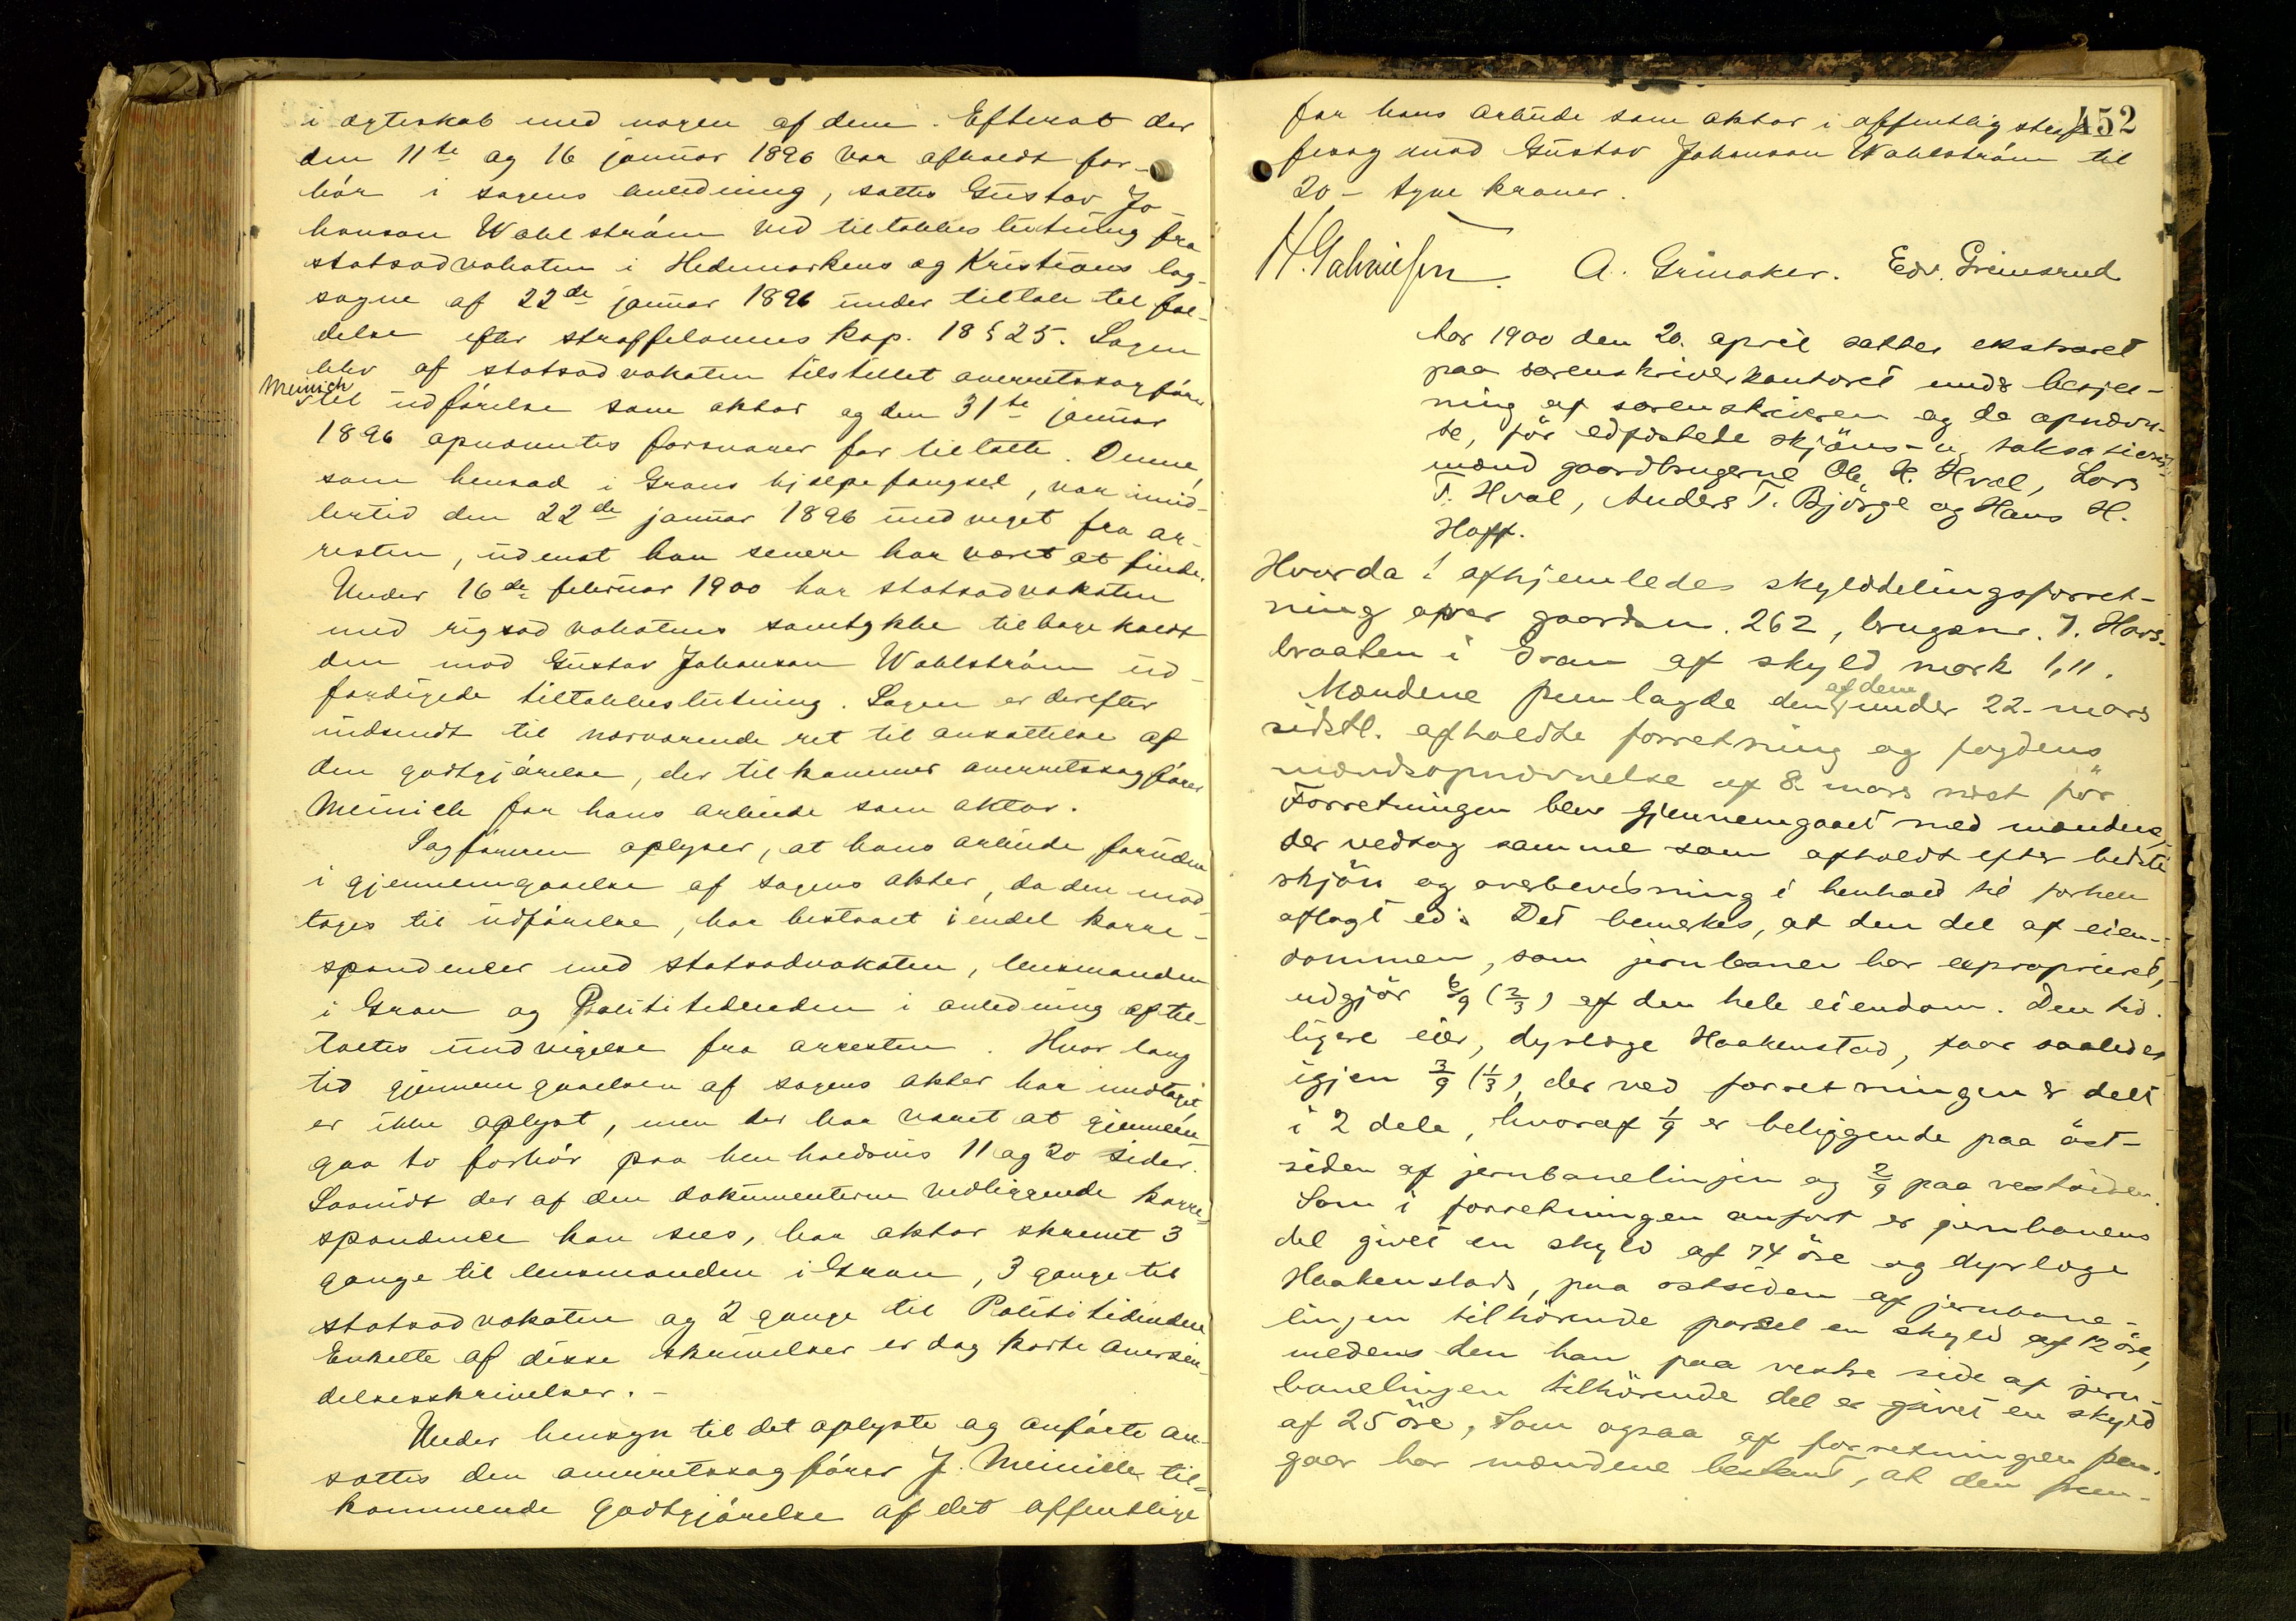 i ægteskab med nogen af dem. Efterat der
den 11te og 16 januar 1896 var afholdt for-
hör i sagens anledning, sattes Gustav Jo-
hanson Wahlström ved tiltalebeslutning fra
statsadvokaten i Hedemarkens og Kristians lag-
sogne af 22de januar 1896 under tiltale til fæl-
delse efter straffelovens kap. 18 § 25. Sagen
blev af statsadvokaten tilstillet overretssagfører
Meinich
til udförelse som aktor og den 31te januar
1896 opnævntes forsvarer for tiltalte. Denne,
som hensad i Grans hjælpefængsel, var imid-
lertid den 22de januar 1896 undveget fra ar-
resten, udenat han senere har været at finde.
Under 16de februar 1900 har statsadvokaten
med rigsadvokatens samtykke tilbagekaldt
den mod Gustav Johanson Wahlström ud-
færdigede tiltalebeslutning. Sagen er derefter
indsendt til nærværende ret til ansættelse af
den godtgjörelse, der tilkommer overretssagfører
Meinich for hans arbeide som aktor.
Sagföreren oplyser, at hans arbeide foruden
i gjennemgaaelse af sagens akter, da den mod-
toges til udförelse, har bestaaet i endel korre-
spondencer med statsadvokaten, lensmanden
i Gran og Politititidenden i anledning af til-
taltes undvigelse fra arresten. Hvor lang
tid gjennemgaaelsen af sagens akter har medtaget,
er ikke oplyst, men der har været at gjennem-
gaa to forhör paa henholdsvis 11 og 20 sider.
Saavidt der af den dokumenterne vedliggende korre-
spondence kan sees, har aktor skrevet 3
gange til lensmanden i Gran, 3 gange til
statsadvokaten og 2 gange til Polititidenden
Enkelte af disse skrivelser er dog korte oversen-
delsesskrivelser. -
Under hensyn til det oplyste og anförte an-
sættes den overretssagförer J. Meinich til-
kommende godtgjörelse af det offentlige
452
for hans arbeide som aktor i offentlig straf-
fesag mod Gustav Johanson Wahlström til
20 - tyve kroner.
A. Grinaker. Edv. Grimsrud
Aar 1900 den 20. april sattes ekstraret
paa sorenskriverkontoret under besjæ-
ning af sorenskriveren og de opnævn-
te, för edfæstede skjöns- og taksations-
mænd gaardbrugerne Ole H. Hval, Lars
T. Hval, Anders T. Bjørge og Hans H.
Hoff.
Hvorda! afhjemledes skylddelingsforret-
ning over gaardsn. 262, brugsnr. 7. Hors-
braaten i Gran af skyld mark 1,11.
Mændene fremlagde den af dem under 22. mars
sidstl. afholdte forretning og fogdens
mændsopnævnelse af 8. mars næst för
Forretningen blev gjennemgaaet med mændene,
der vedtog samme som afholdt efter bedste
skjön og overbevisning i henhold til forhen
aflagt ed. Det bemerkes, at den del af eien-
dommen, som jernbanen har exproprieret,
udgjör 6/9 (2/3) af den hele eiendom. Den tid-
ligere eier, dyrlæge Haakenstad, faar saaledes
igjen 3/9 (1/3), der ved forretningen er delt
i 2 dele, hvoraf 1/9 er beliggende paa öst-
siden af jernbanelinjen og 2/9 paa vestsiden.
Som i forretningen anfort er jernbanens
del givet en skyld af 74 öre og dyrlæge
Haakenstads, paa ostsiden af jernbane-
linjen tilhörende parsel en skyld af 12 öre,
medens den ham paa vestre side af jern-
banelingen tilhörende del er givet en skyld
af 25 öre, Som ogsaa af forretningen frem-
gaar har mændene bestemt, at den frem-